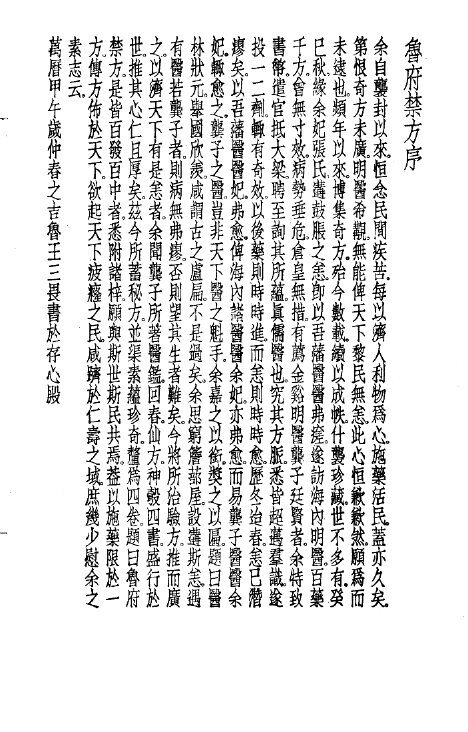 魯府禁方序
余自襲封以來恒念民間疾苦每以濟人利物爲心施藥活民蓋亦久矣
第恨奇方未廣明醫希覯無能俾天下黎民無恙此心恒歉歉然願爲而
未遠也頻年以來博集奇方殆今數載績以成帙什襲珍藏世不多有癸
巳秋緣余妃張氏遘鼓脹之恙卽以吾藩醫醫弗痊遂訪海內明醫百藥
千方曾無寸效病勢垂危倉皇無措有薦金谿明醫龔子廷賢者余特致
書幣遣官抵大梁聘至詢其所蘊眞儒醫也究其方脈悉皆超邁羣識遂
投一二劑輒有奇效以後藥則時時進而恙則時時愈歷冬迨春恙已潛
瘳矣以吾藩醫醫妃弗愈俾海內諸醫醫余妃亦弗愈而易龔子醫醫余
妃輒愈之龔子之醫豈非天下醫之魁乎余嘉之以銜獎之以匾題曰醫
林狀元舉國欣羨咸謂古之盧扁不是過矣余思窮簷蔀屋設遘斯恙遇
有醫若龔子者則病無弗瘳否則望其生者難矣今將所治驗方推而廣
之以濟天下有是恙者余聞龔子所著醫鑑回春仙方神彀四書盛行於
世推其心仁且厚矣茲今所蓄秘方並渠素蘊珍奇釐爲四卷題曰魯府
禁方是皆百發百中者悉附諸梓願與斯世斯民共焉益以施藥限於一
方傳方佈於天下欲起天下疲癃之民咸躋於仁壽之域庶幾少慰余之
素志云
萬曆甲午歲仲春之吉魯王三畏書於存心殿